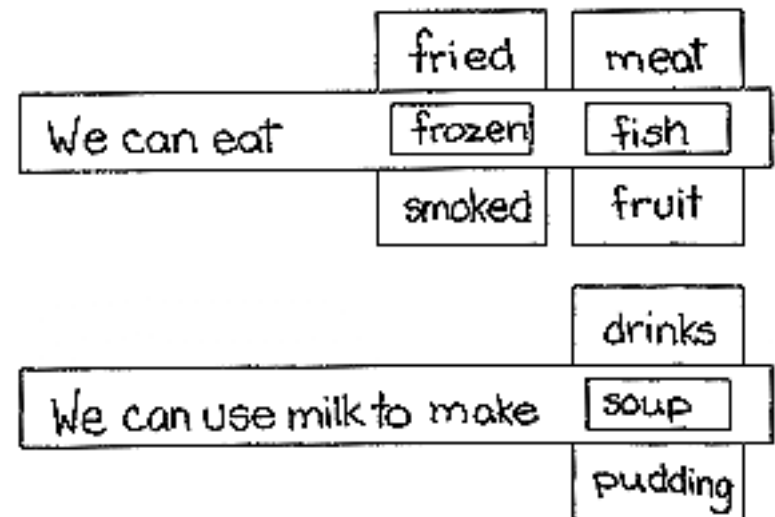 fried meat
We can eat frozen fish
smoked fruit
drinks
We can use milk to make soup
pudding